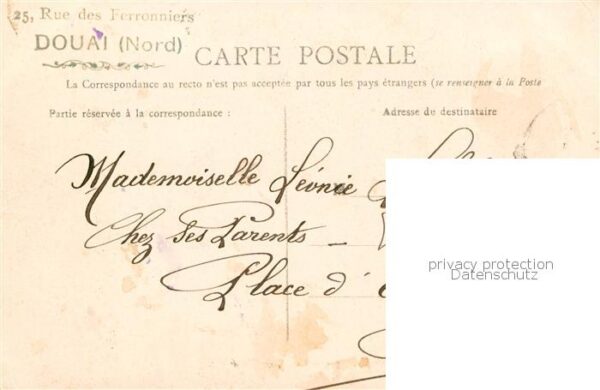 25, Rue des Ferronniers
DOUAI (Nord)
CARTE POSTALE
La Correspondance au recto n'est pas acceptée par tous les pays étrangers (se renseigner à la Poste
Partie réservée à la correspondance :
Adresse du destinataire
Mademoiselle Léonie
Chez Ses Parents –
Place d'
privacy protection
Datenschutz